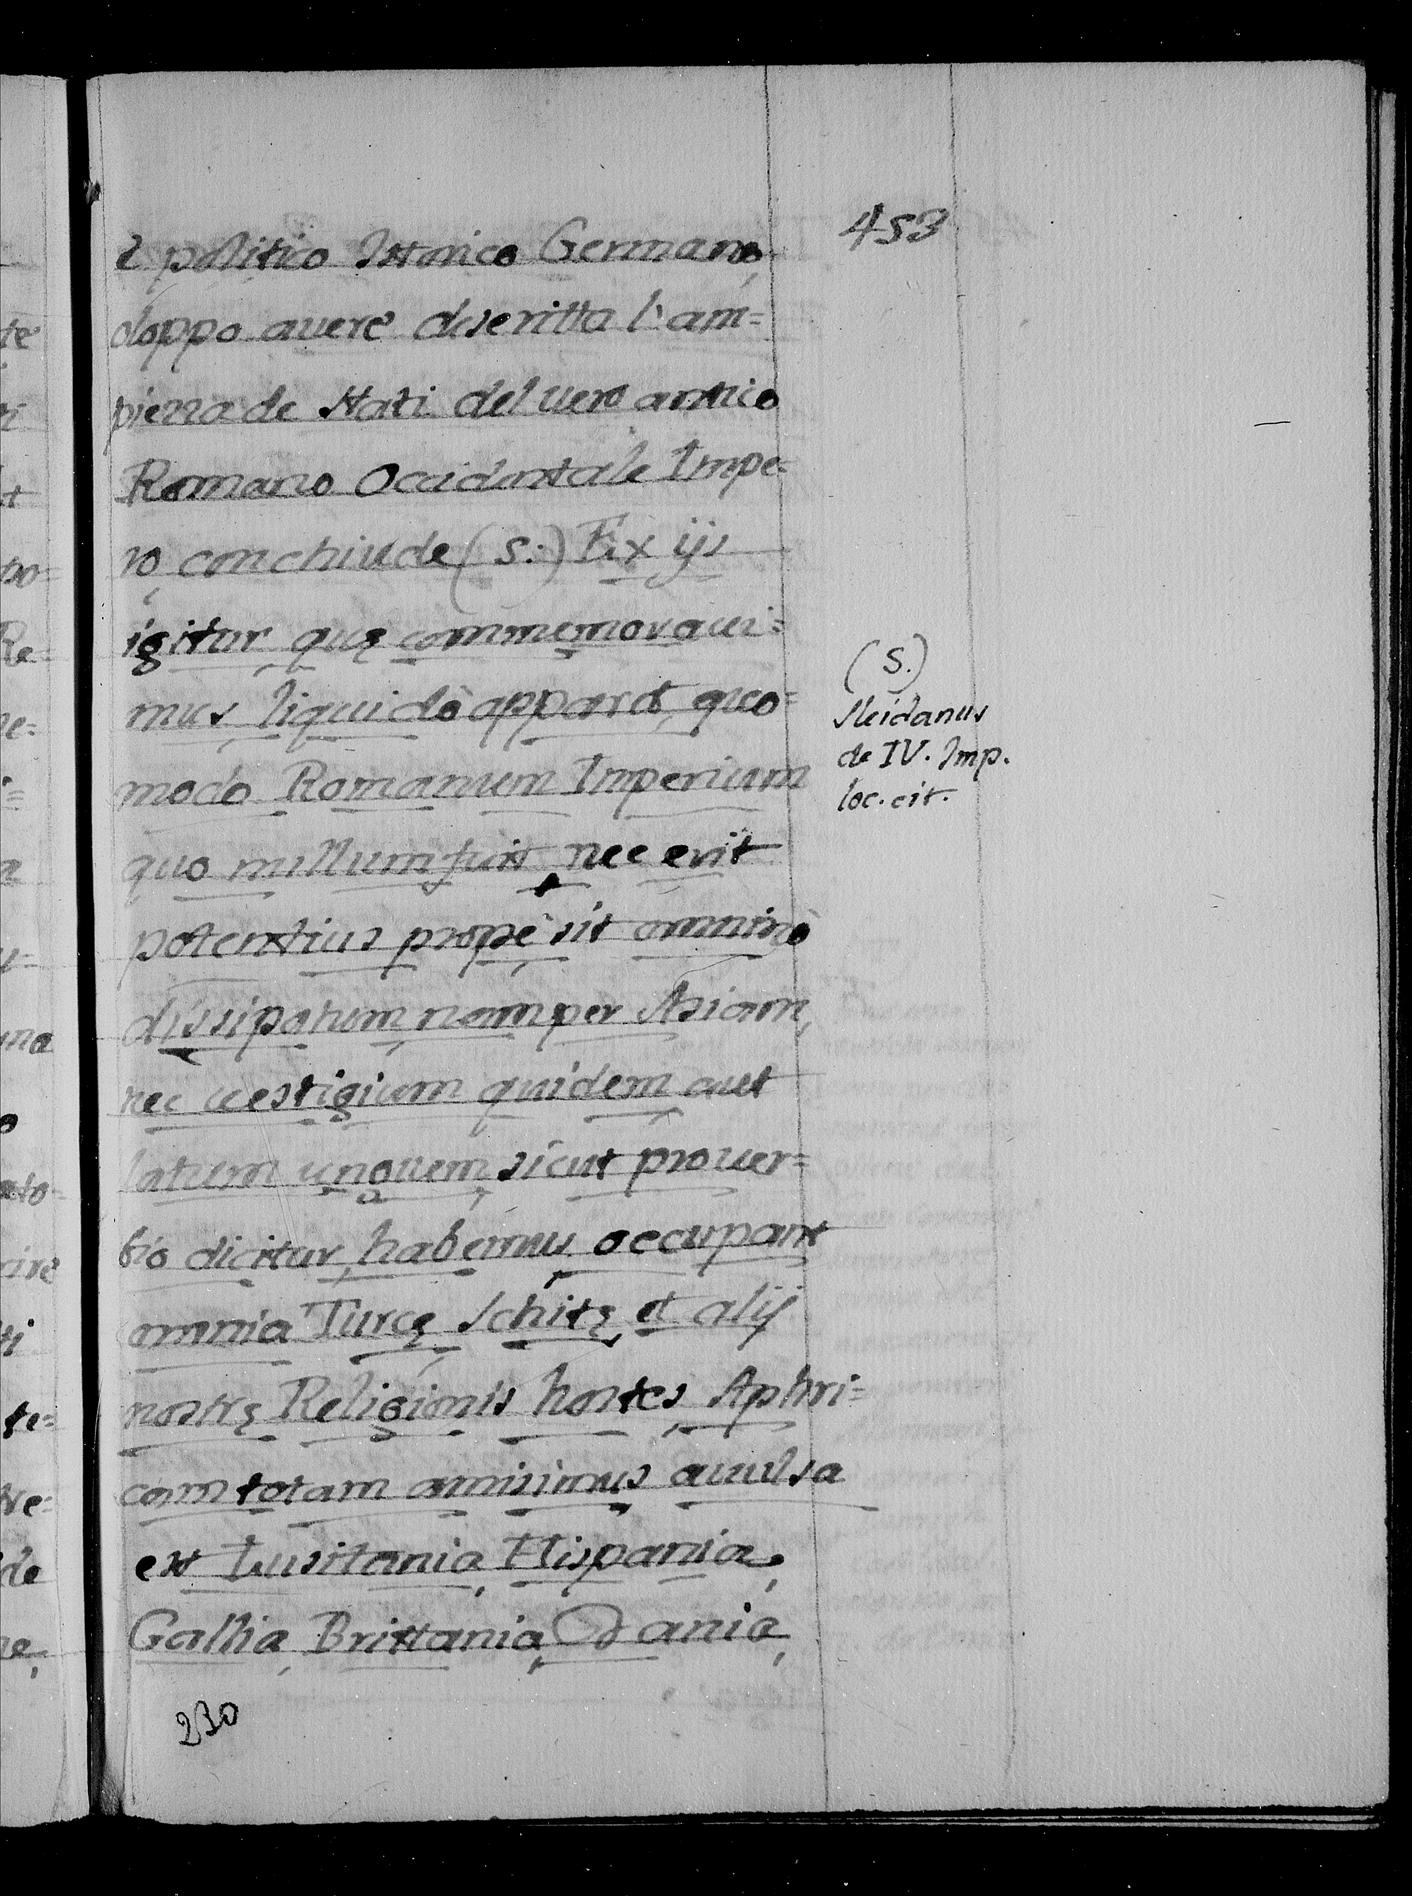 453
e politico Istorico Germano
doppo auere descritta l'am=
piezza de Stati del uero antico
Romano Occidentale Impe=
ro conchiude (S.) Ex ijs
igitur quę commemoraui=
mus, liquidò apparet, quo=
modo Romanum Imperium
quo nullum fuit, nec erit
potentius propè sit omninò
dissipatum, nam per Asiam,
nec uestigium quidem aut
latum unguem, sicut prouer=
bio dicitur, habemus, occupant
omnia Turcę, Schitę, et alij
nostrę Religionis hostes, Aphri=
cam totam amisimus, auulsa
est Lusitania, Hispania,
Gallia, Brittania, Dania,
(S.)
Sleidanus
de IV. Imp.
loc. cit.
230